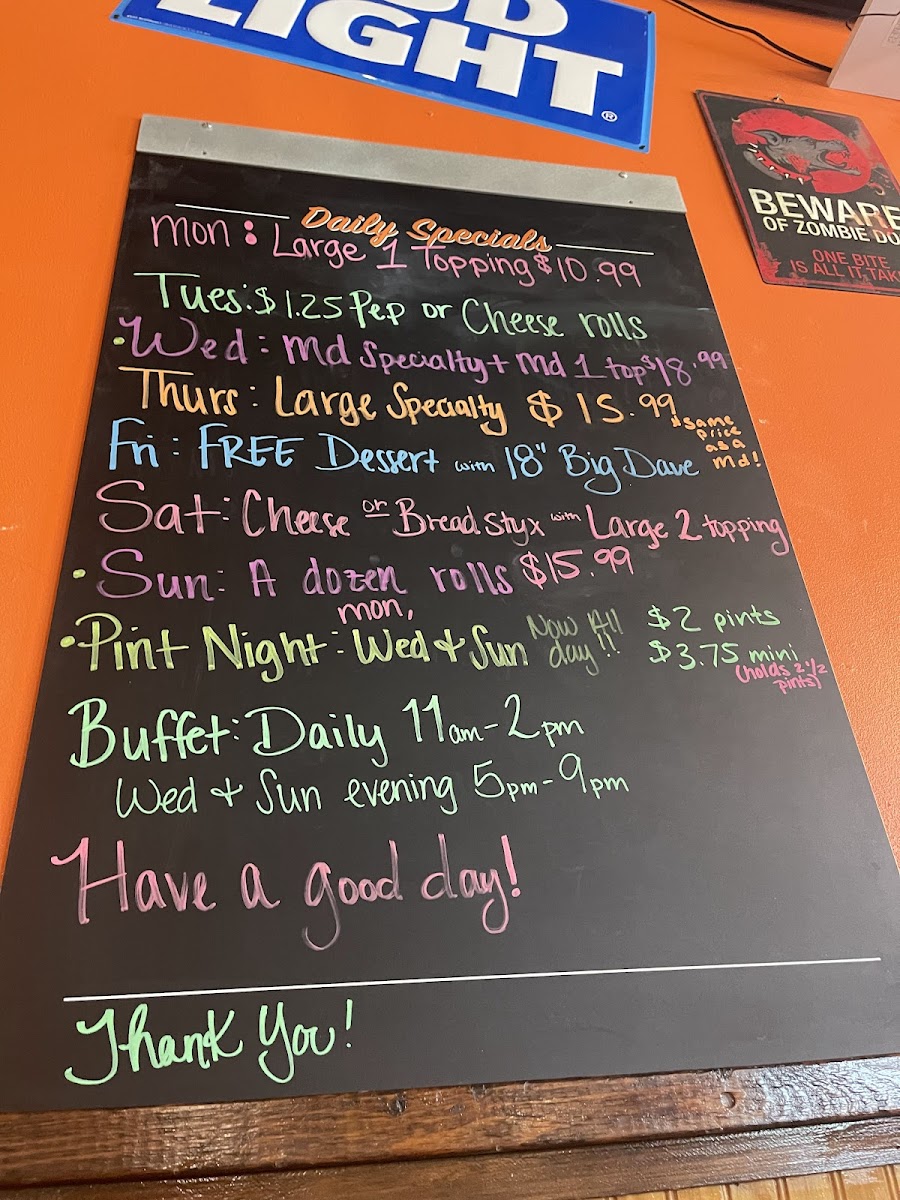 UD
LIGHT®
BEWARE
OF ZOMBIE DO
ONE BITE
IS ALL IT TAK
Daily Specials
Mon: Large 1 Topping $10.99
Tues: $1.25 Pep or Cheese rolls
• Wed: Md Specialty + Md 1 top $18.99
Thurs: Large Specialty $15.99
*same
price
as a
md!
Fri: FREE Dessert with 18" Big Dave
Sat: Cheese or Bread Styx with Large 2 topping
• Sun: A dozen rolls $15.99
mon,
• Pint Night: Wed + Sun Now All
day!! $2 pints
$3.75 mini
(holds 2 1/2
pints)
Buffet: Daily 11am-2pm
Wed + Sun evening 5pm-9pm
Have a good day!
Thank You!